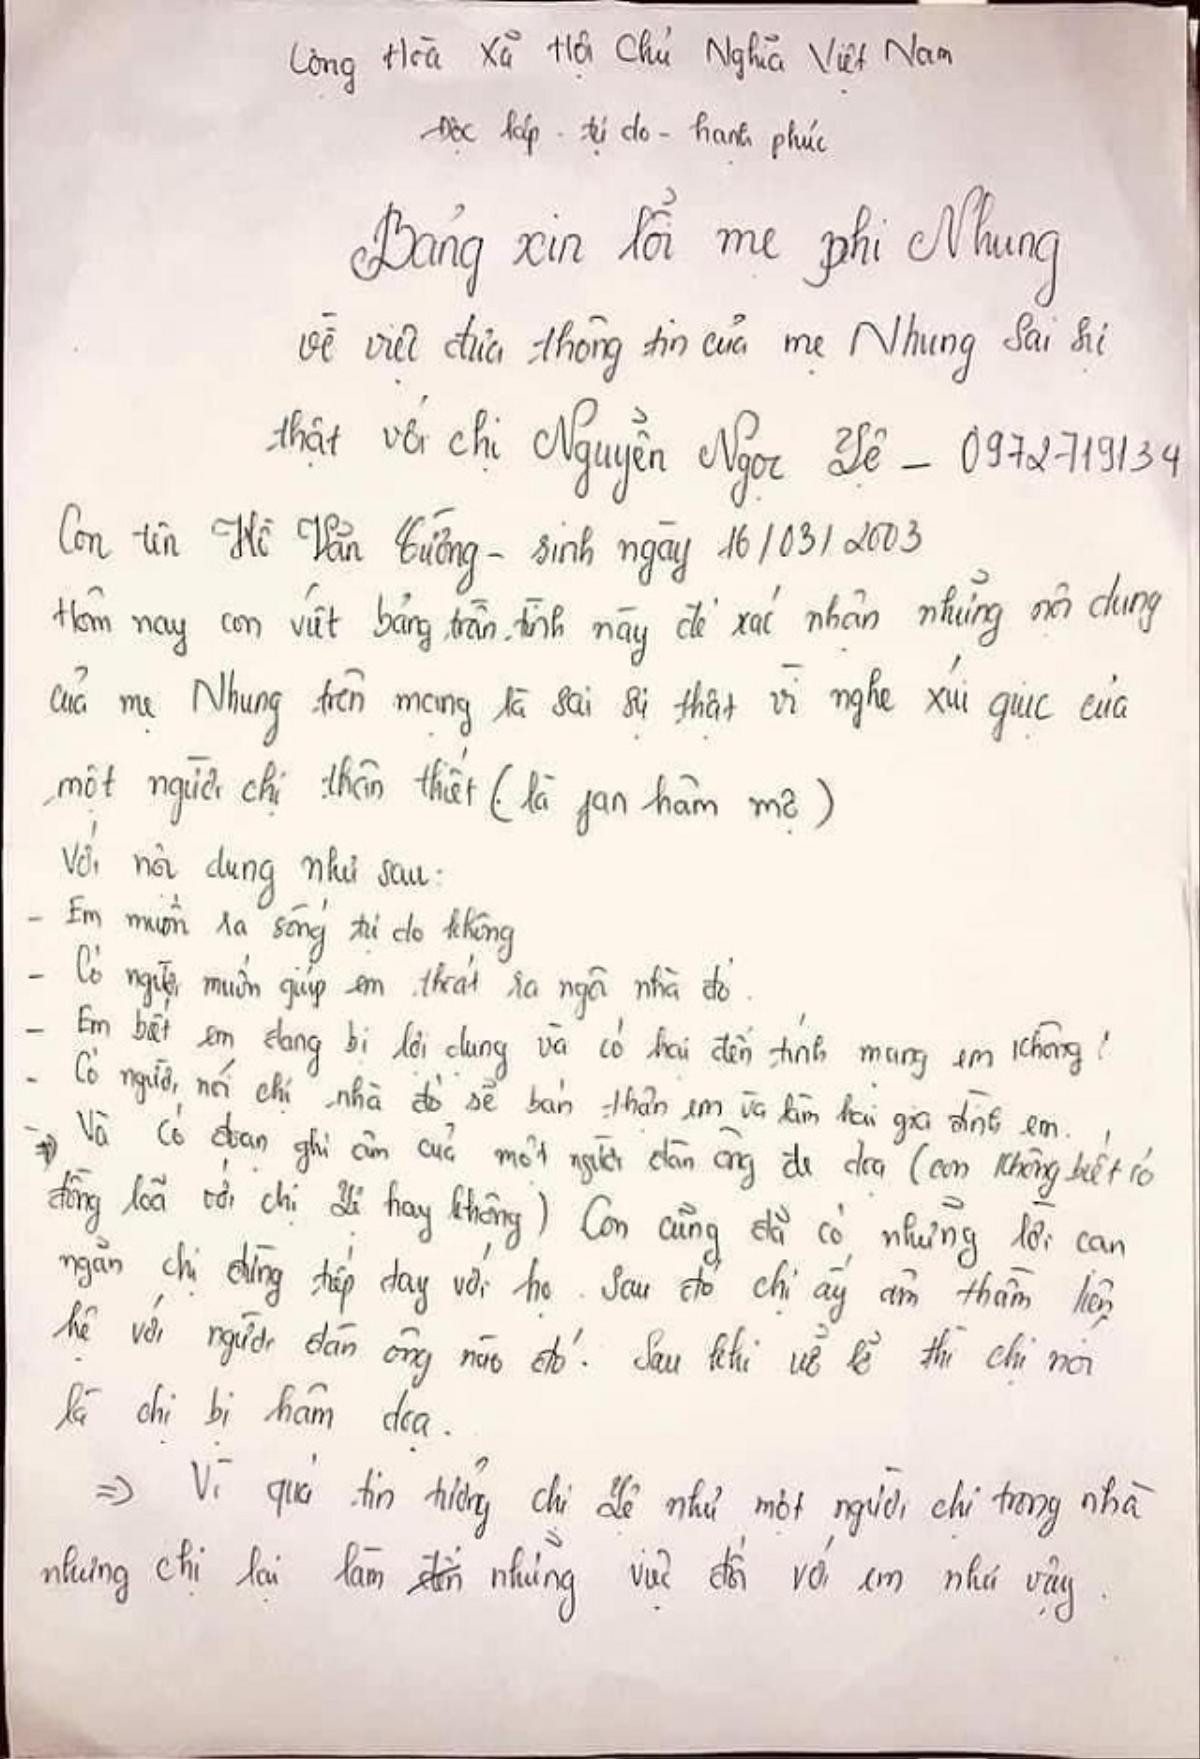 Cộng Hoà Xã Hội Chủ Nghĩa Việt Nam
Độc lập - tự do - hạnh phúc
Bảng xin lỗi mẹ phi Nhung
về việc đưa thông tin của mẹ Nhung Sai sự
thật với chị Nguyễn Ngọc Lệ - 0972719134
Con tên Hồ Văn Cường - sinh ngày 16/03/2003
Hôm nay con viết bảng trần tình này để xác nhận những nội dung
của mẹ Nhung trên mạng là sai sự thật vì nghe xúi giục của
một người chị thân thiết (là fan hâm mộ)
Với nội dung như sau:
- Em muốn ra sống tự do không
- Có người muốn giúp em thoát ra ngôi nhà đó.
- Em biết em đang bị lợi dụng và có hại đến tính mạng em không?
- Có người nói chị nhà đó sẽ bán thận em và làm hại gia đình em.
=> Và có đoạn ghi âm của một người đàn ông đe doạ (con không biết có
đồng loã với chị Lệ hay không) Con cũng đã có những lời can
ngăn chị đừng tiếp tay với họ. Sau đó chị ấy âm thầm liên
hệ với người đàn ông nào đó. Sau khi vở lẽ thì chị nói
là chị bị hâm doạ.
=> Vì quá tin tưởng chị Lệ như một người chị trong nhà
nhưng chị lại làm những việc đối với em như vậy.